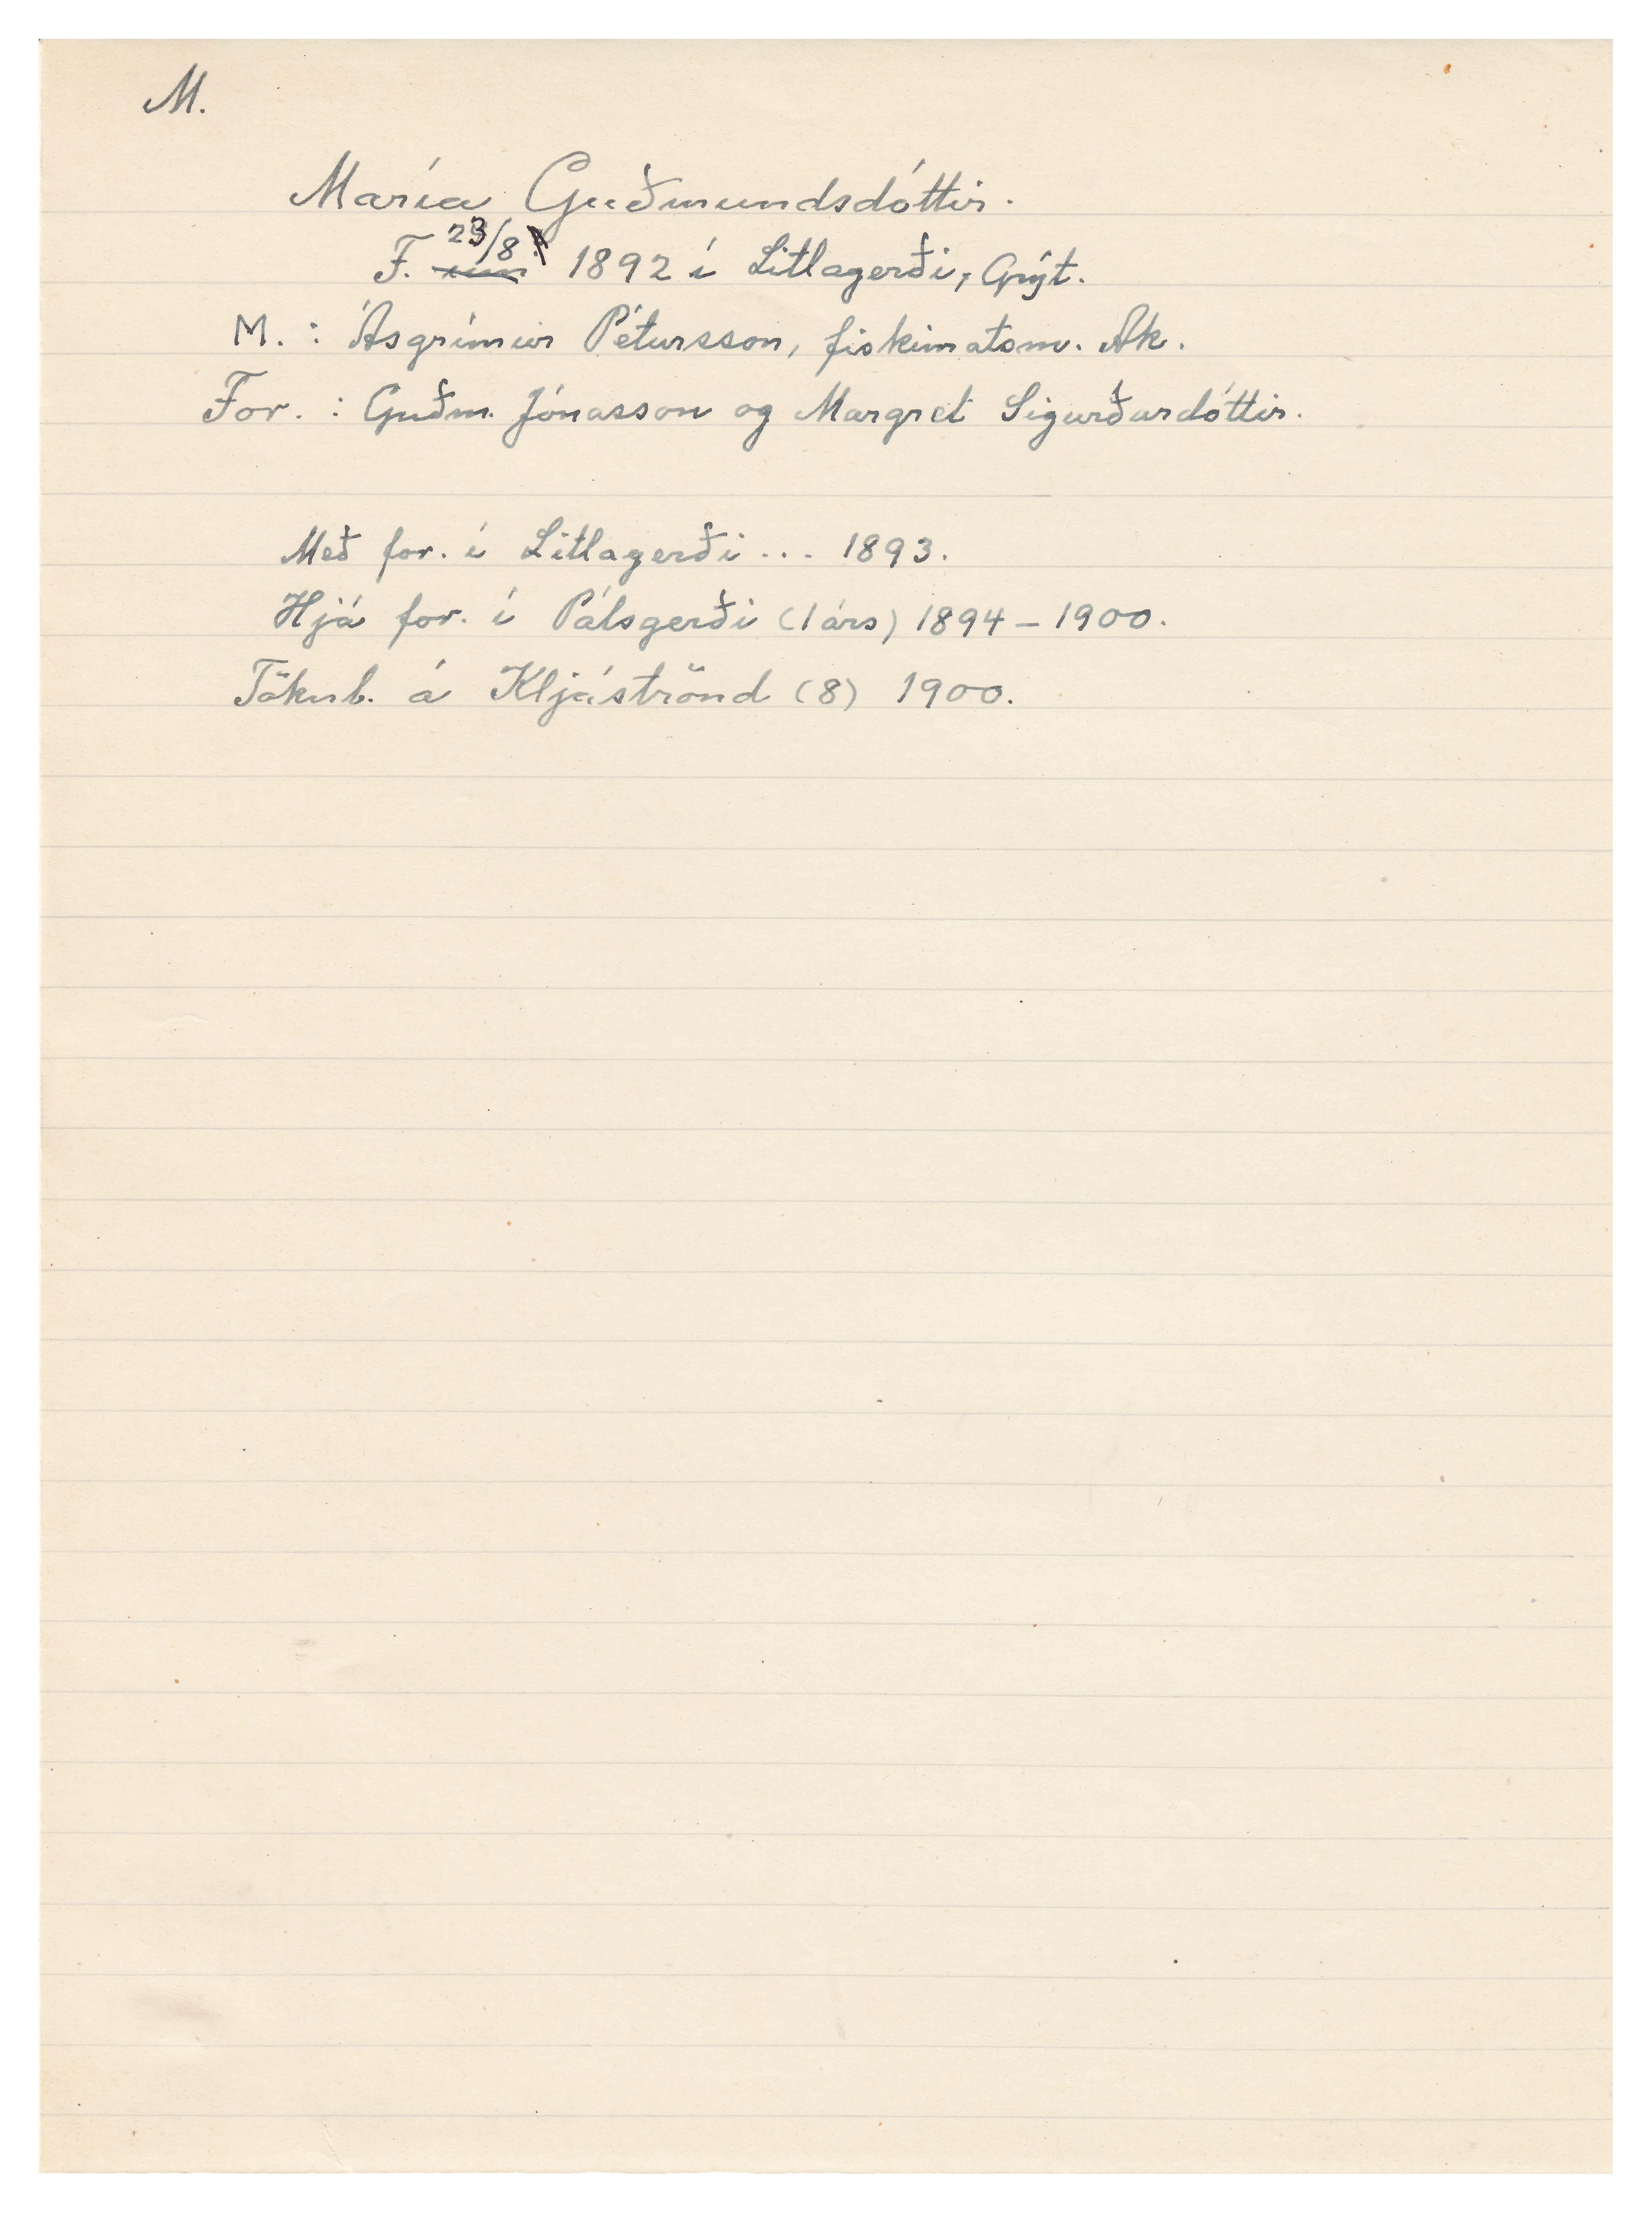 M.
María Guðmundsdóttir.
F. 23/8. 1892 í Litlagerði, Grýt.
M. : Ásgrímur Pétursson, fiskimatsm. Ak.
For. : Guðm. Jónasson og Margret Sigurðardóttir.
Með for. í Litlagerði ... 1893.
Hjá for. í Pálsgerði (1 árs) 1894 - 1900.
Tökub. á Kljáströnd (8) 1900.